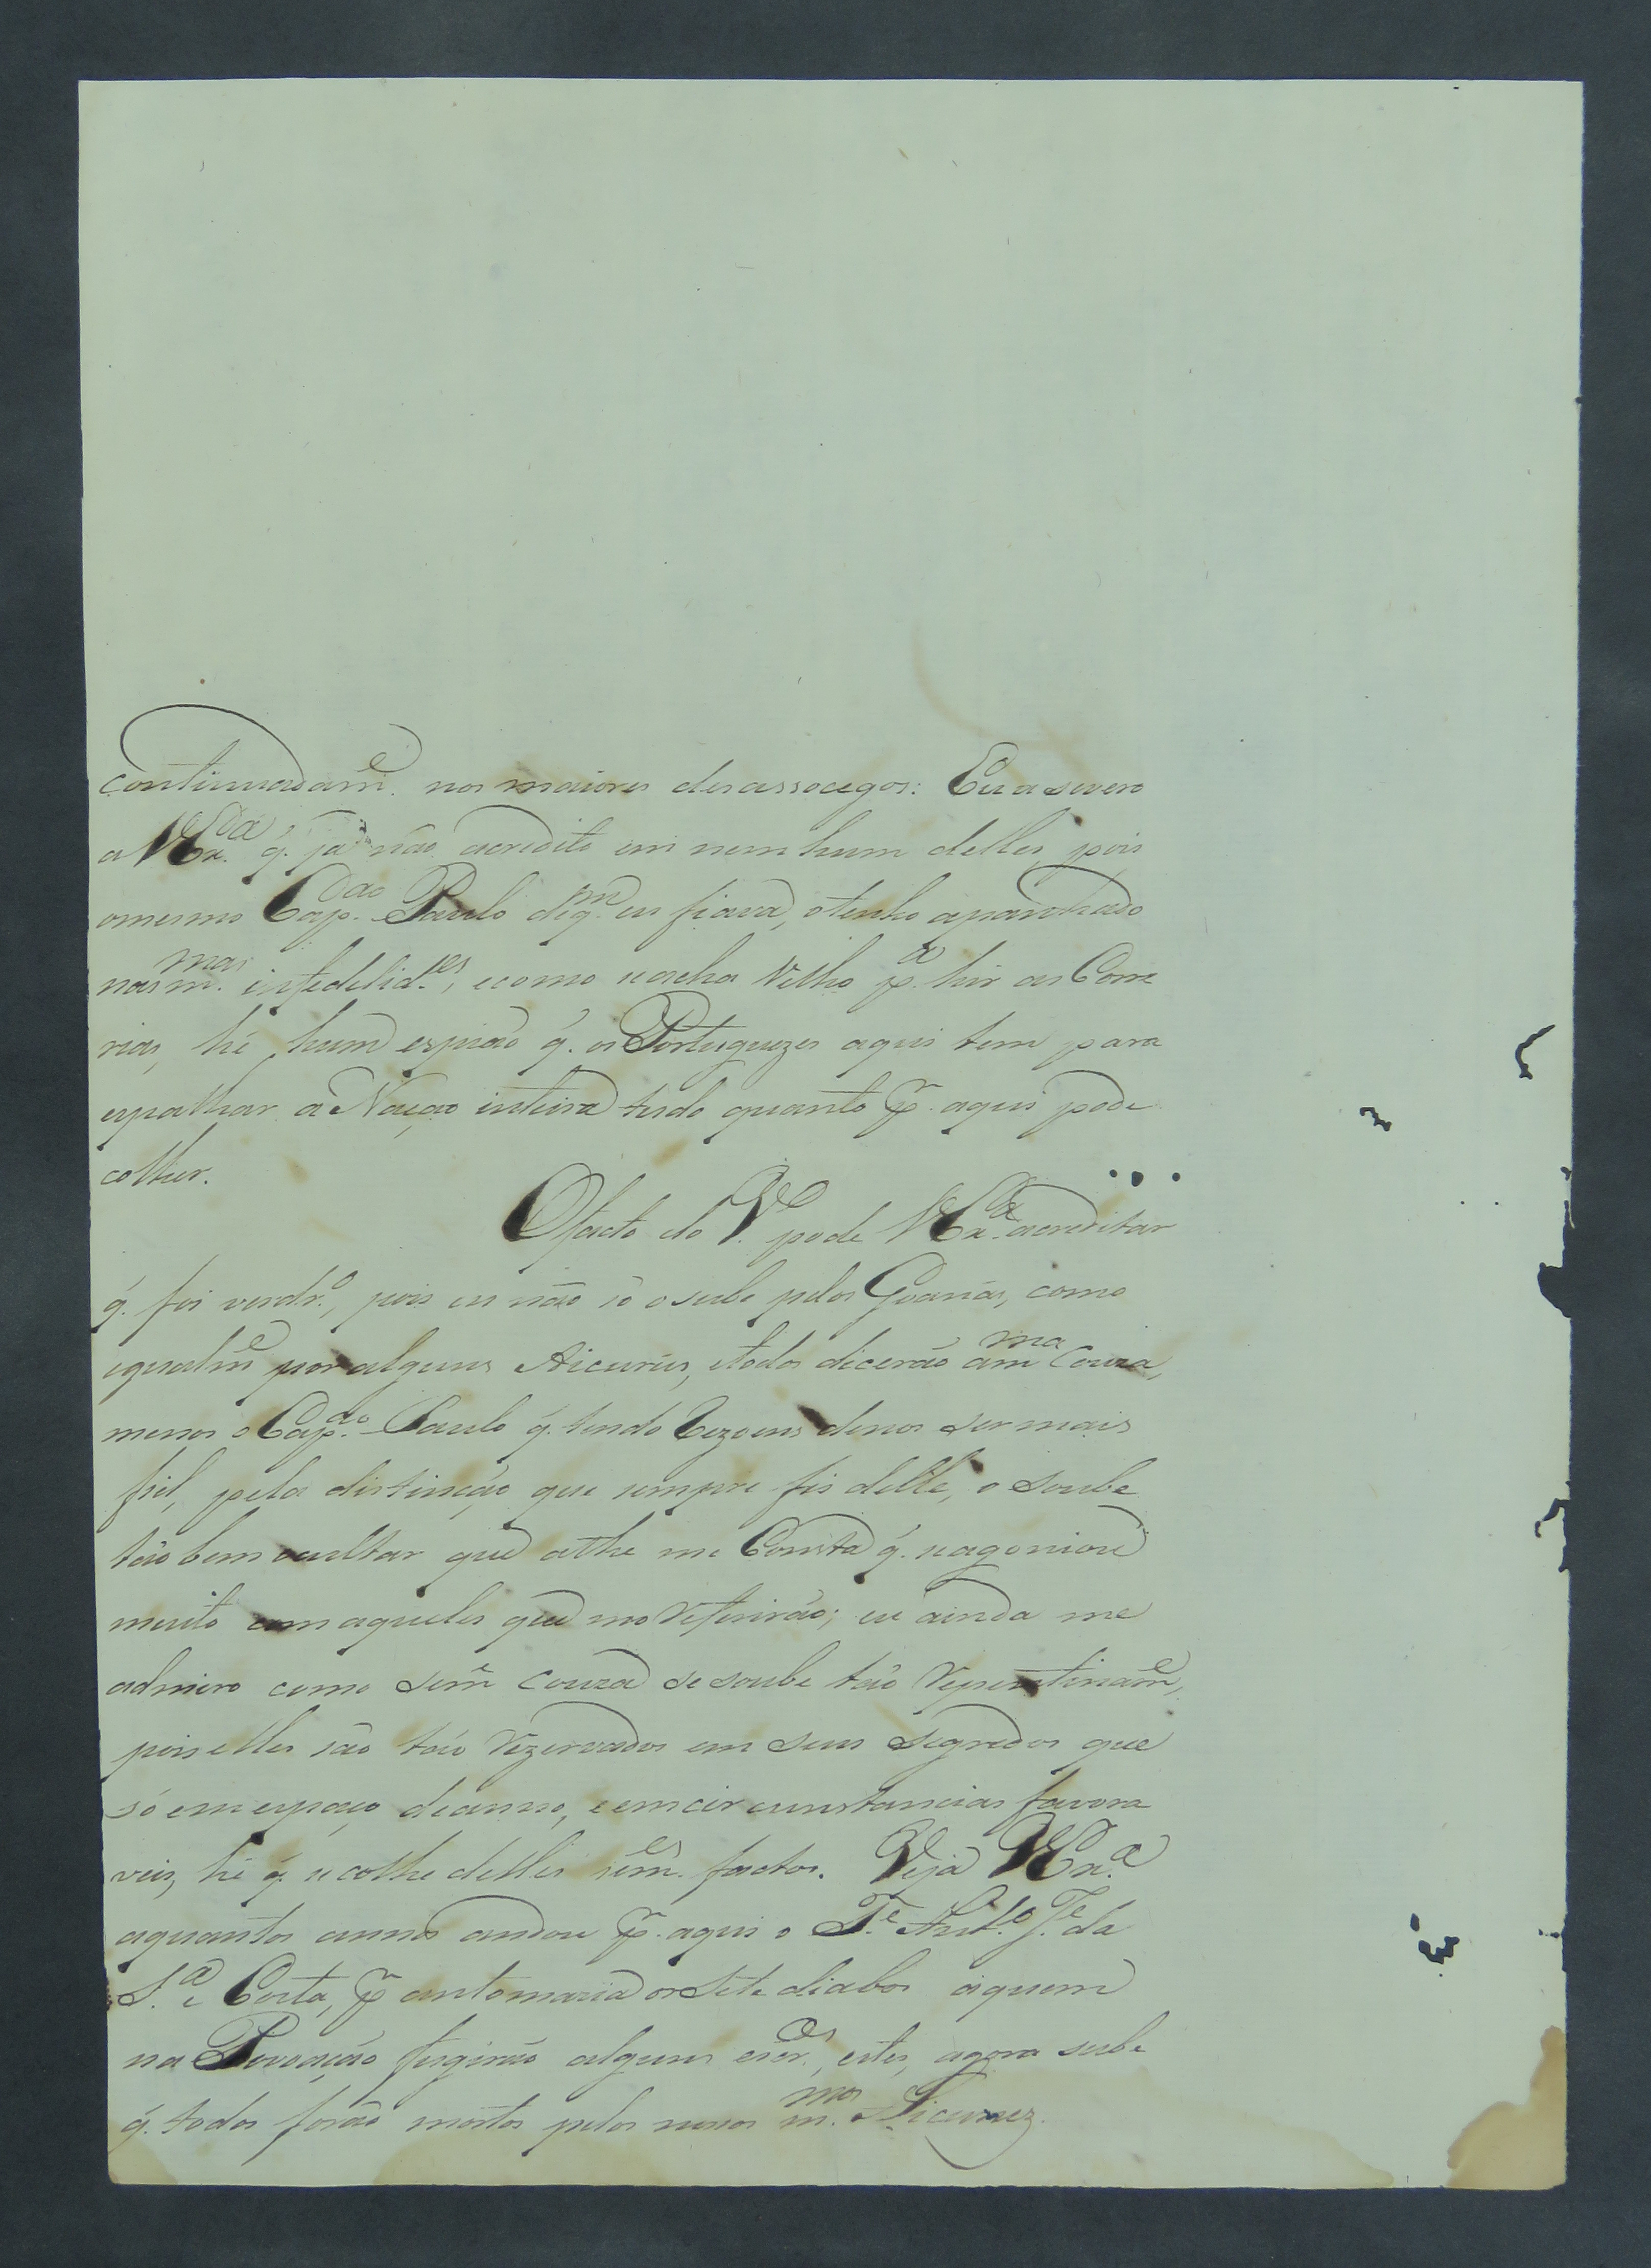 continuadam.e nos maiores desassocegos: Eu assevero
a V Ex.a q. já não acredito em nem hum delles, pois
omesmo Cap.ão Paulo deq.m eu fiava, o tenho apanhado
nas m.mas infedelid.es, ecomo seacha Velho p.a hir as Corre
rias, hé hum espião q. os Portuguezes aqui tem para
espalhar a Nação inteira tudo quanto p.r aqui pode
colher.
Ofacto do V.e pode V Ex.a acreditar
q. foi verdr.o, pois eu não só o sube pelos Goanás, como
igualm.e por alguns Aicurús, etodos dicerão a m.ma Couza,
menos o Cap.ão Paulo q. tendo Rezoens denos ser mais
fiel, pela distinção que sempre fis delle, o soube
tão bem ocultar que athe me Consta q. seagoniou
muito com aqueles que mo Referirão; eu ainda me
admiro como sem.e couza se soube tão Repentinam.e,
pois elles são tão Rezervados em seus segredos que
só em espaço deanno, e em circunstancias favora
veis, hé q. se colhe delles sem.es factos. Veja V Ex.a
aquantos annos andou p.r aqui o T.e Ant.o J.e da
S.a e Costa, p.r antomazia os Sete diabos aquem
na Povoação fugirão alguns escr.os, estes, agora sube
q. todos forão mortos pelos nossos m.mos Aicuruz.